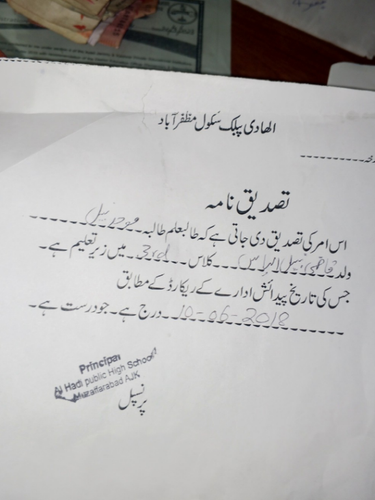 الھادی پبلک سکول مظفر آباد
تصدیق نامہ
اس امر کی تصدیق دی جاتی ہے کہ طالبعلم طالبہ
ولد کلاس میں زیر تعلیم ہے۔
جس کی تاریخ پیدائش ادارے کے ریکارڈ کے مطابق
10-06-2018 درج ہے۔ جو درست ہے۔
Principal
Al Hadi public High School
Muzaffarabad AJK
پرنسپل